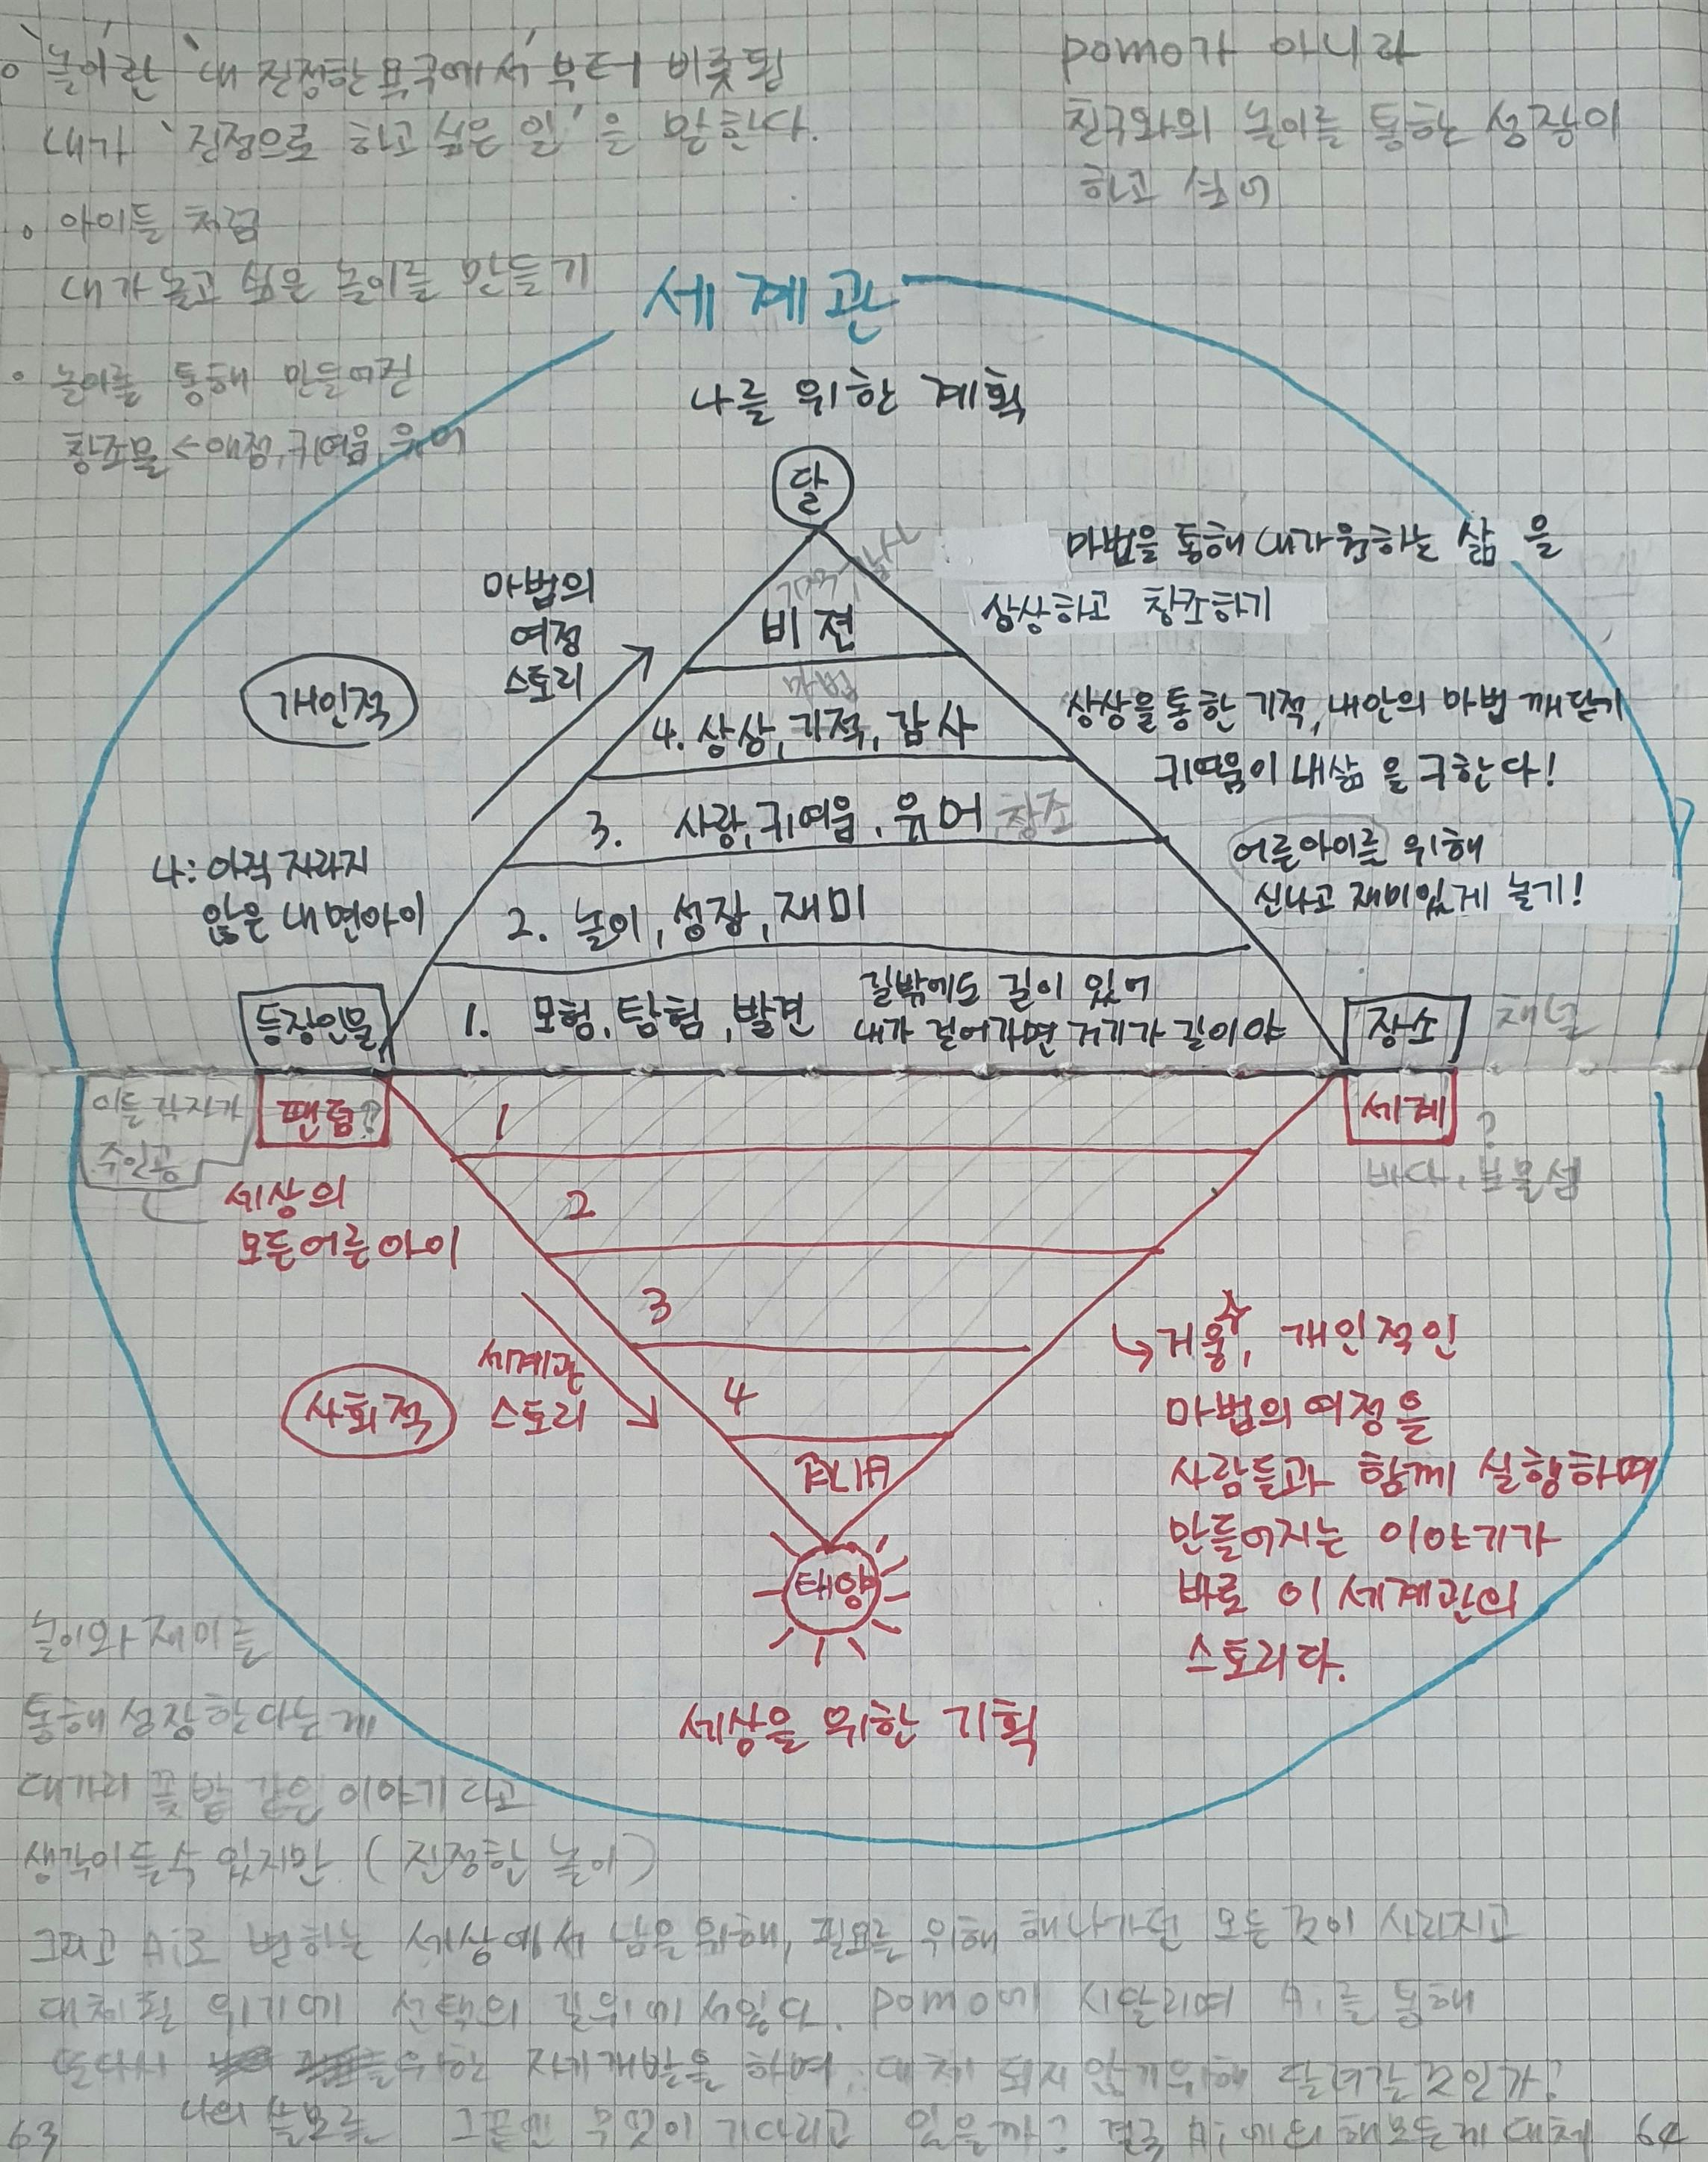 놀이란 '내 진정한 욕구에서'부터 비롯된
내가 '진정으로 하고 싶은 일'을 말한다.
아이들 처럼
내가 놀고 싶은 놀이를 만들기
놀이를 통해 만들어진
창조물 < 애정, 귀여움, 유머
pomo가 아니라
친구와의 놀이를 통한 성장이
하고 싶어
세계관
나를 위한 계획
달
마법의
여정
스토리
개인적
비전
마법을 통해 내가 원하는 삶을
상상하고 창조하기
4. 상상, 기적, 감사
상상을 통한 기적, 내안의 마법 깨닫기
귀여움이 내삶을 구한다!
3. 사랑, 귀여움, 유머, 창조
나: 아직 자라지
않은 내면아이
어른아이를 위해
신나고 재미있게 놀기!
2. 놀이, 성장, 재미
등장인물
1. 모험, 탐험, 발견
길밖에도 길이 있어
내가 걸어가면 거기가 길이야
장소
채널
이들 각자가
주인공
팬덤?
1
세계
?
바다, 보물섬
세상의
모든어른아이
2
3
세계관
스토리
사회적
4
비전
태양
→ 거울, 개인적인
마법의 여정을
사람들과 함께 실행하며
만들어지는 이야기가
바로 이 세계관의
스토리다.
세상을 위한 기획
놀이와 재미를
통해 성장한다는게
대가리 꽃밭 같은 이야기다고
생각이들수 있지만 (진정한 놀이)
그리고 Ai로 변하는 세상에서 남을 위해, 필요를 위해 해나가던 모든 것이 사라지고
대체될 위기에 선택의 길위에 서있다. pomo에 시달리며 Ai를 통해
또다시 위한 자기개발을 하며, 대체 되지 않기위해 달려갈 것인가?
나의 쓸모를 그끝엔 무엇이 기다리고 있을까? 결국 Ai에의해모든게 대체
63
64